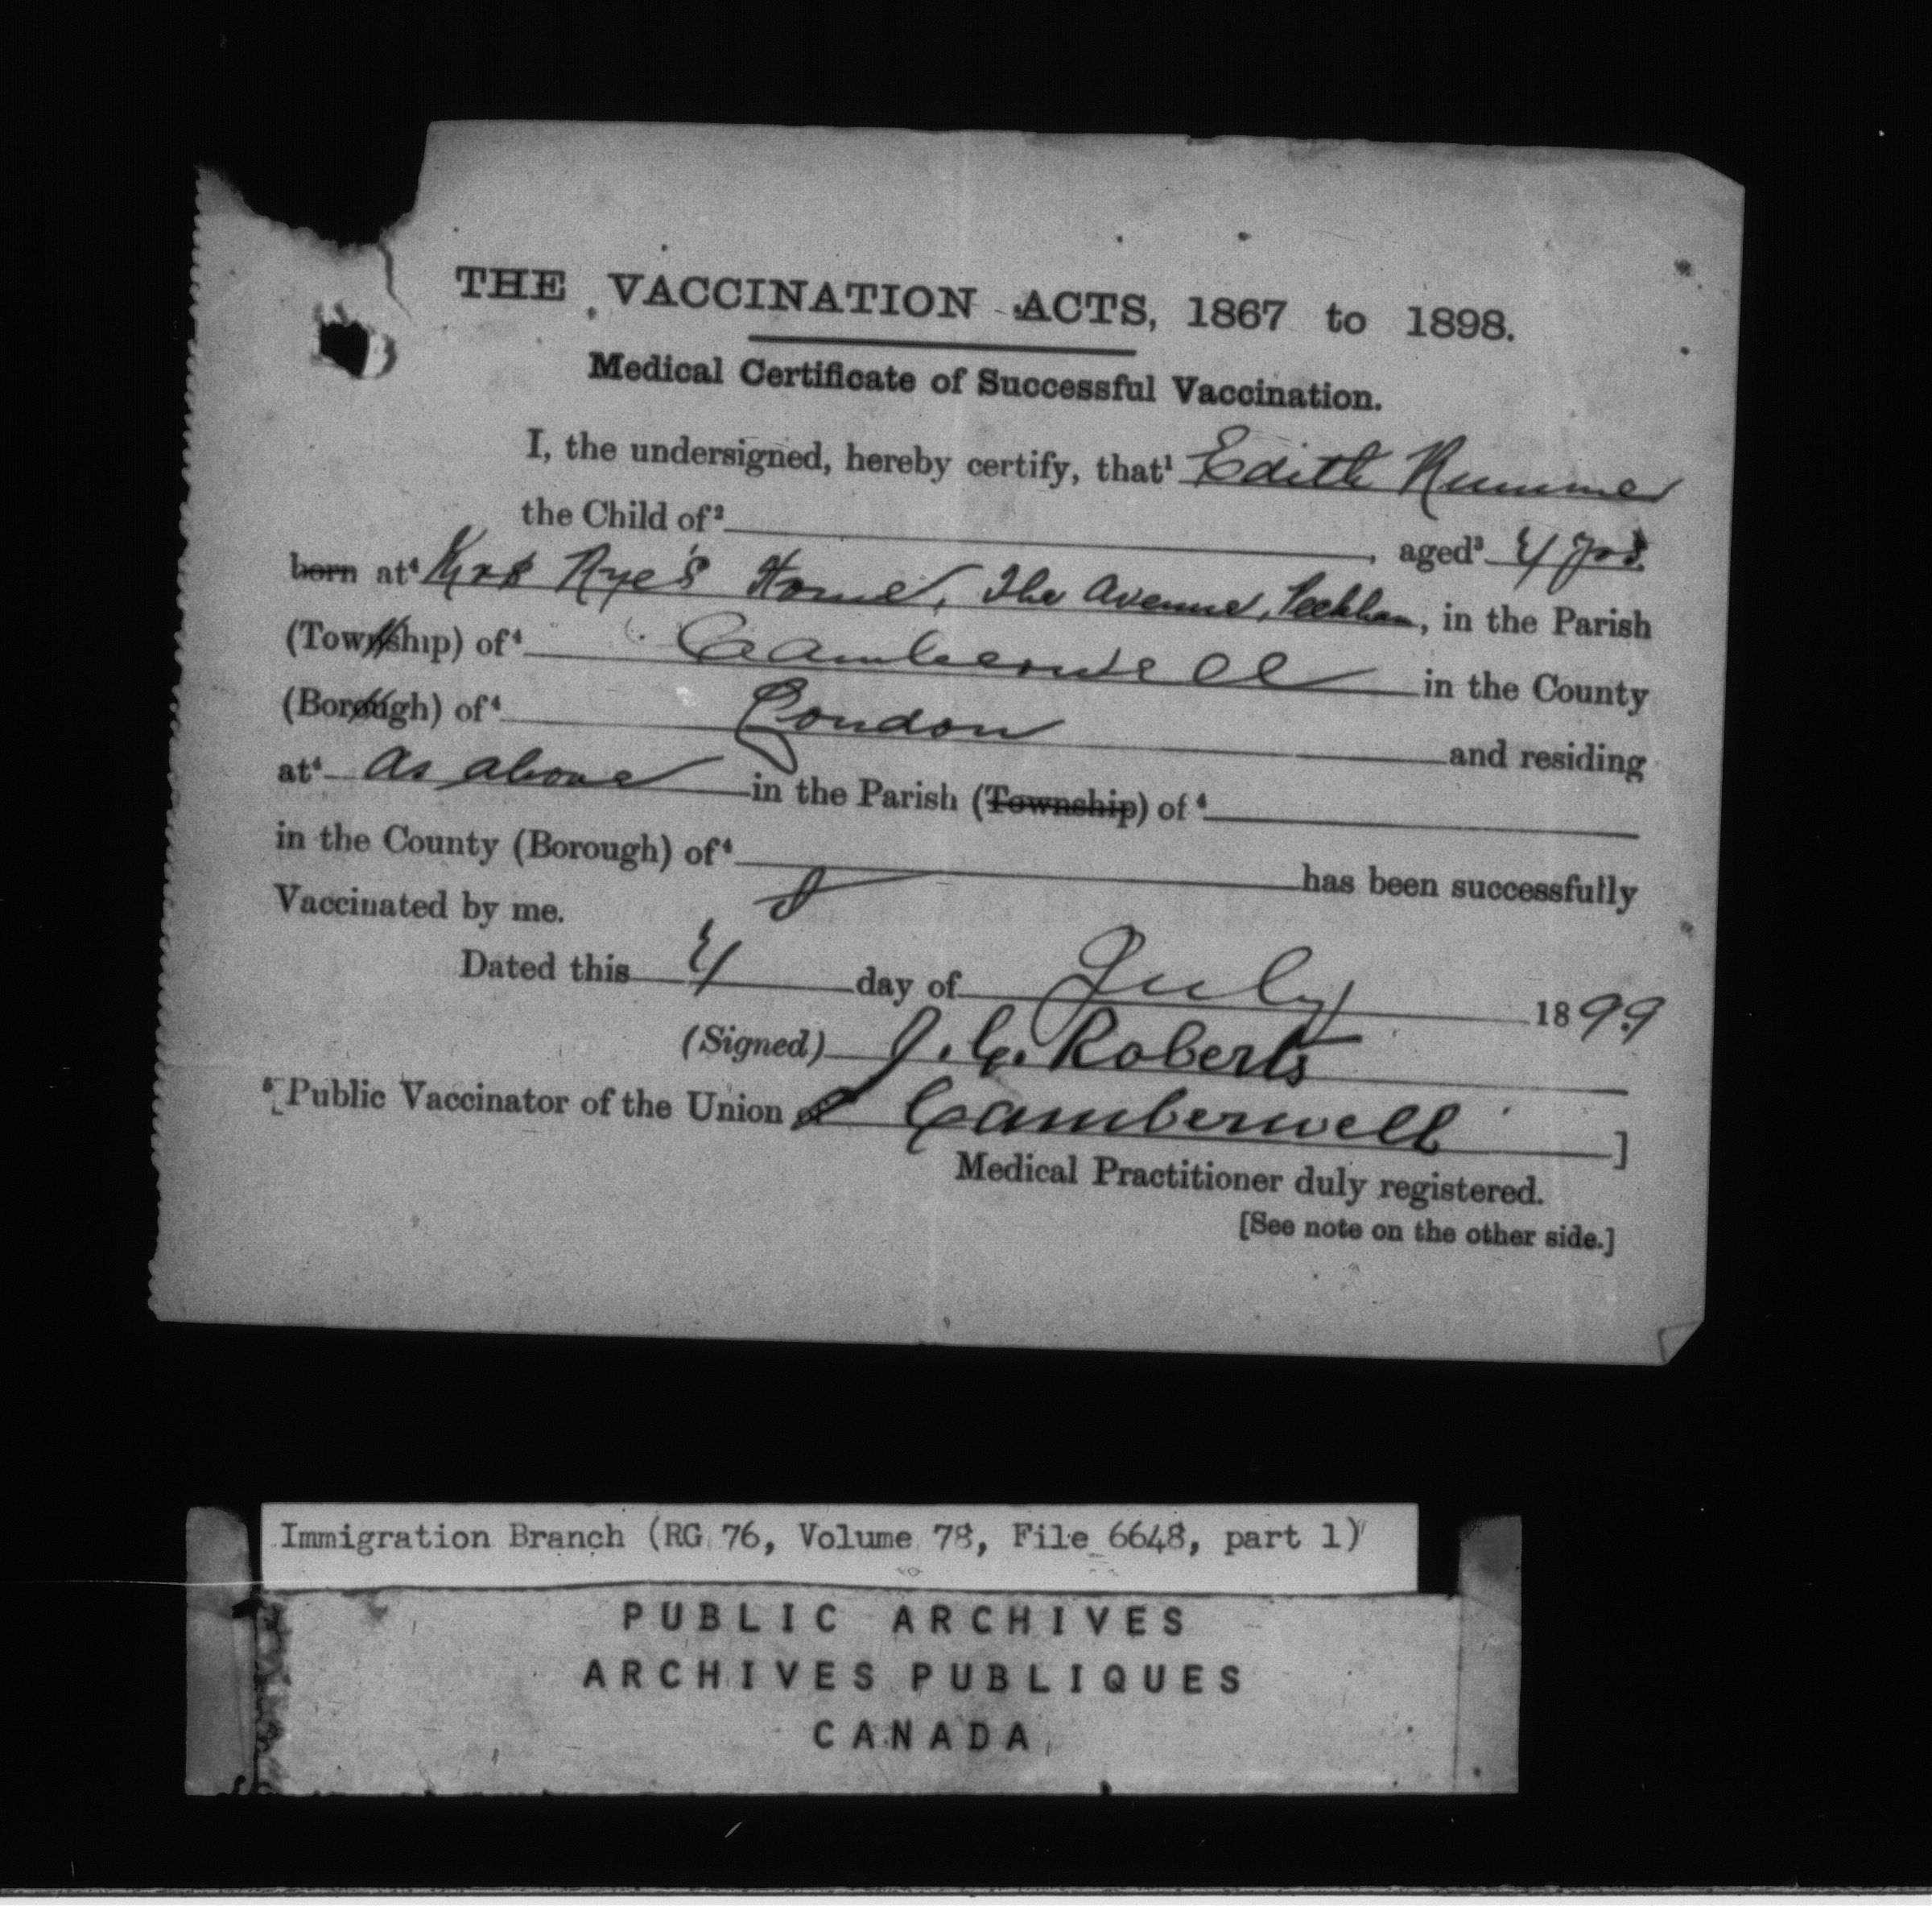 THE VACCINATION ACTS, 1867 to 1898.
Medical Certificate of Successful Vaccination.
I, the undersigned, hereby certify, that¹ Edith Rummer
the Child of² , aged³ 4 yrs
born at⁴ Mrs Rye's Home, The Avenue, Peckham, in the Parish
(Township) of⁴ Camberwell in the County
(Borough) of⁴ London and residing
at⁴ as above in the Parish (Township) of⁴
in the County (Borough) of⁴ has been successfully
Vaccinated by me.
Dated this 4 day of July 1899
(Signed) J. C. Roberts
⁵[Public Vaccinator of the Union of Camberwell ]
Medical Practitioner duly registered.
[See note on the other side.]
Immigration Branch (RG 76, Volume 78, File 6648, part 1)
PUBLIC ARCHIVES
ARCHIVES PUBLIQUES
CANADA